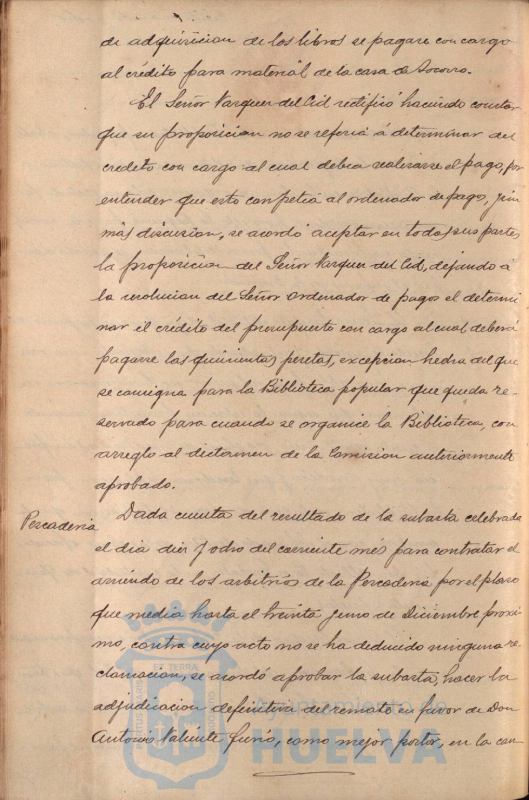 de adquisicion de los libros se pagare con cargo
al crédito para material de la casa de Socorro.
El Señor Vazquez del Cid rectificó haciendo constar
que su proposicion no se referia á determinar del
credito con cargo al cual debia realizarse el pago, por
entender que esto competia al ordenador de pagos, y sin
más discusion, se acordó aceptar en todas sus partes
la proposicion del Señor Vazquez del Cid, dejando á
la resolucion del Señor Ordenador de pagos el determi
nar el crédito del presupuesto con cargo al cual deberá
pagarse las quinientas pesetas, excepcion hecha del que
se consigna para la Biblioteca popular que queda re-
servado para cuando se organice la Biblioteca, con
arreglo al dictamen de la Comision anteriormente
aprobado.
Pescaderia
Dada cuenta del resultado de la subasta celebrada
el dia diez y ocho del corriente mes para contratar el
arriendo de los arbitrios de la Pescaderia por el plazo
que media hasta el treinta y uno de Diciembre proxi
mo, contra cuyo acto no se ha deducido ninguna re-
clamacion, se acordó aprobar la subasta, hacer la
adjudicacion definitiva del remate en favor de Don
Antonio Valiente Funés, como mejor postor, en la can
Ayuntamiento de
HUELVA